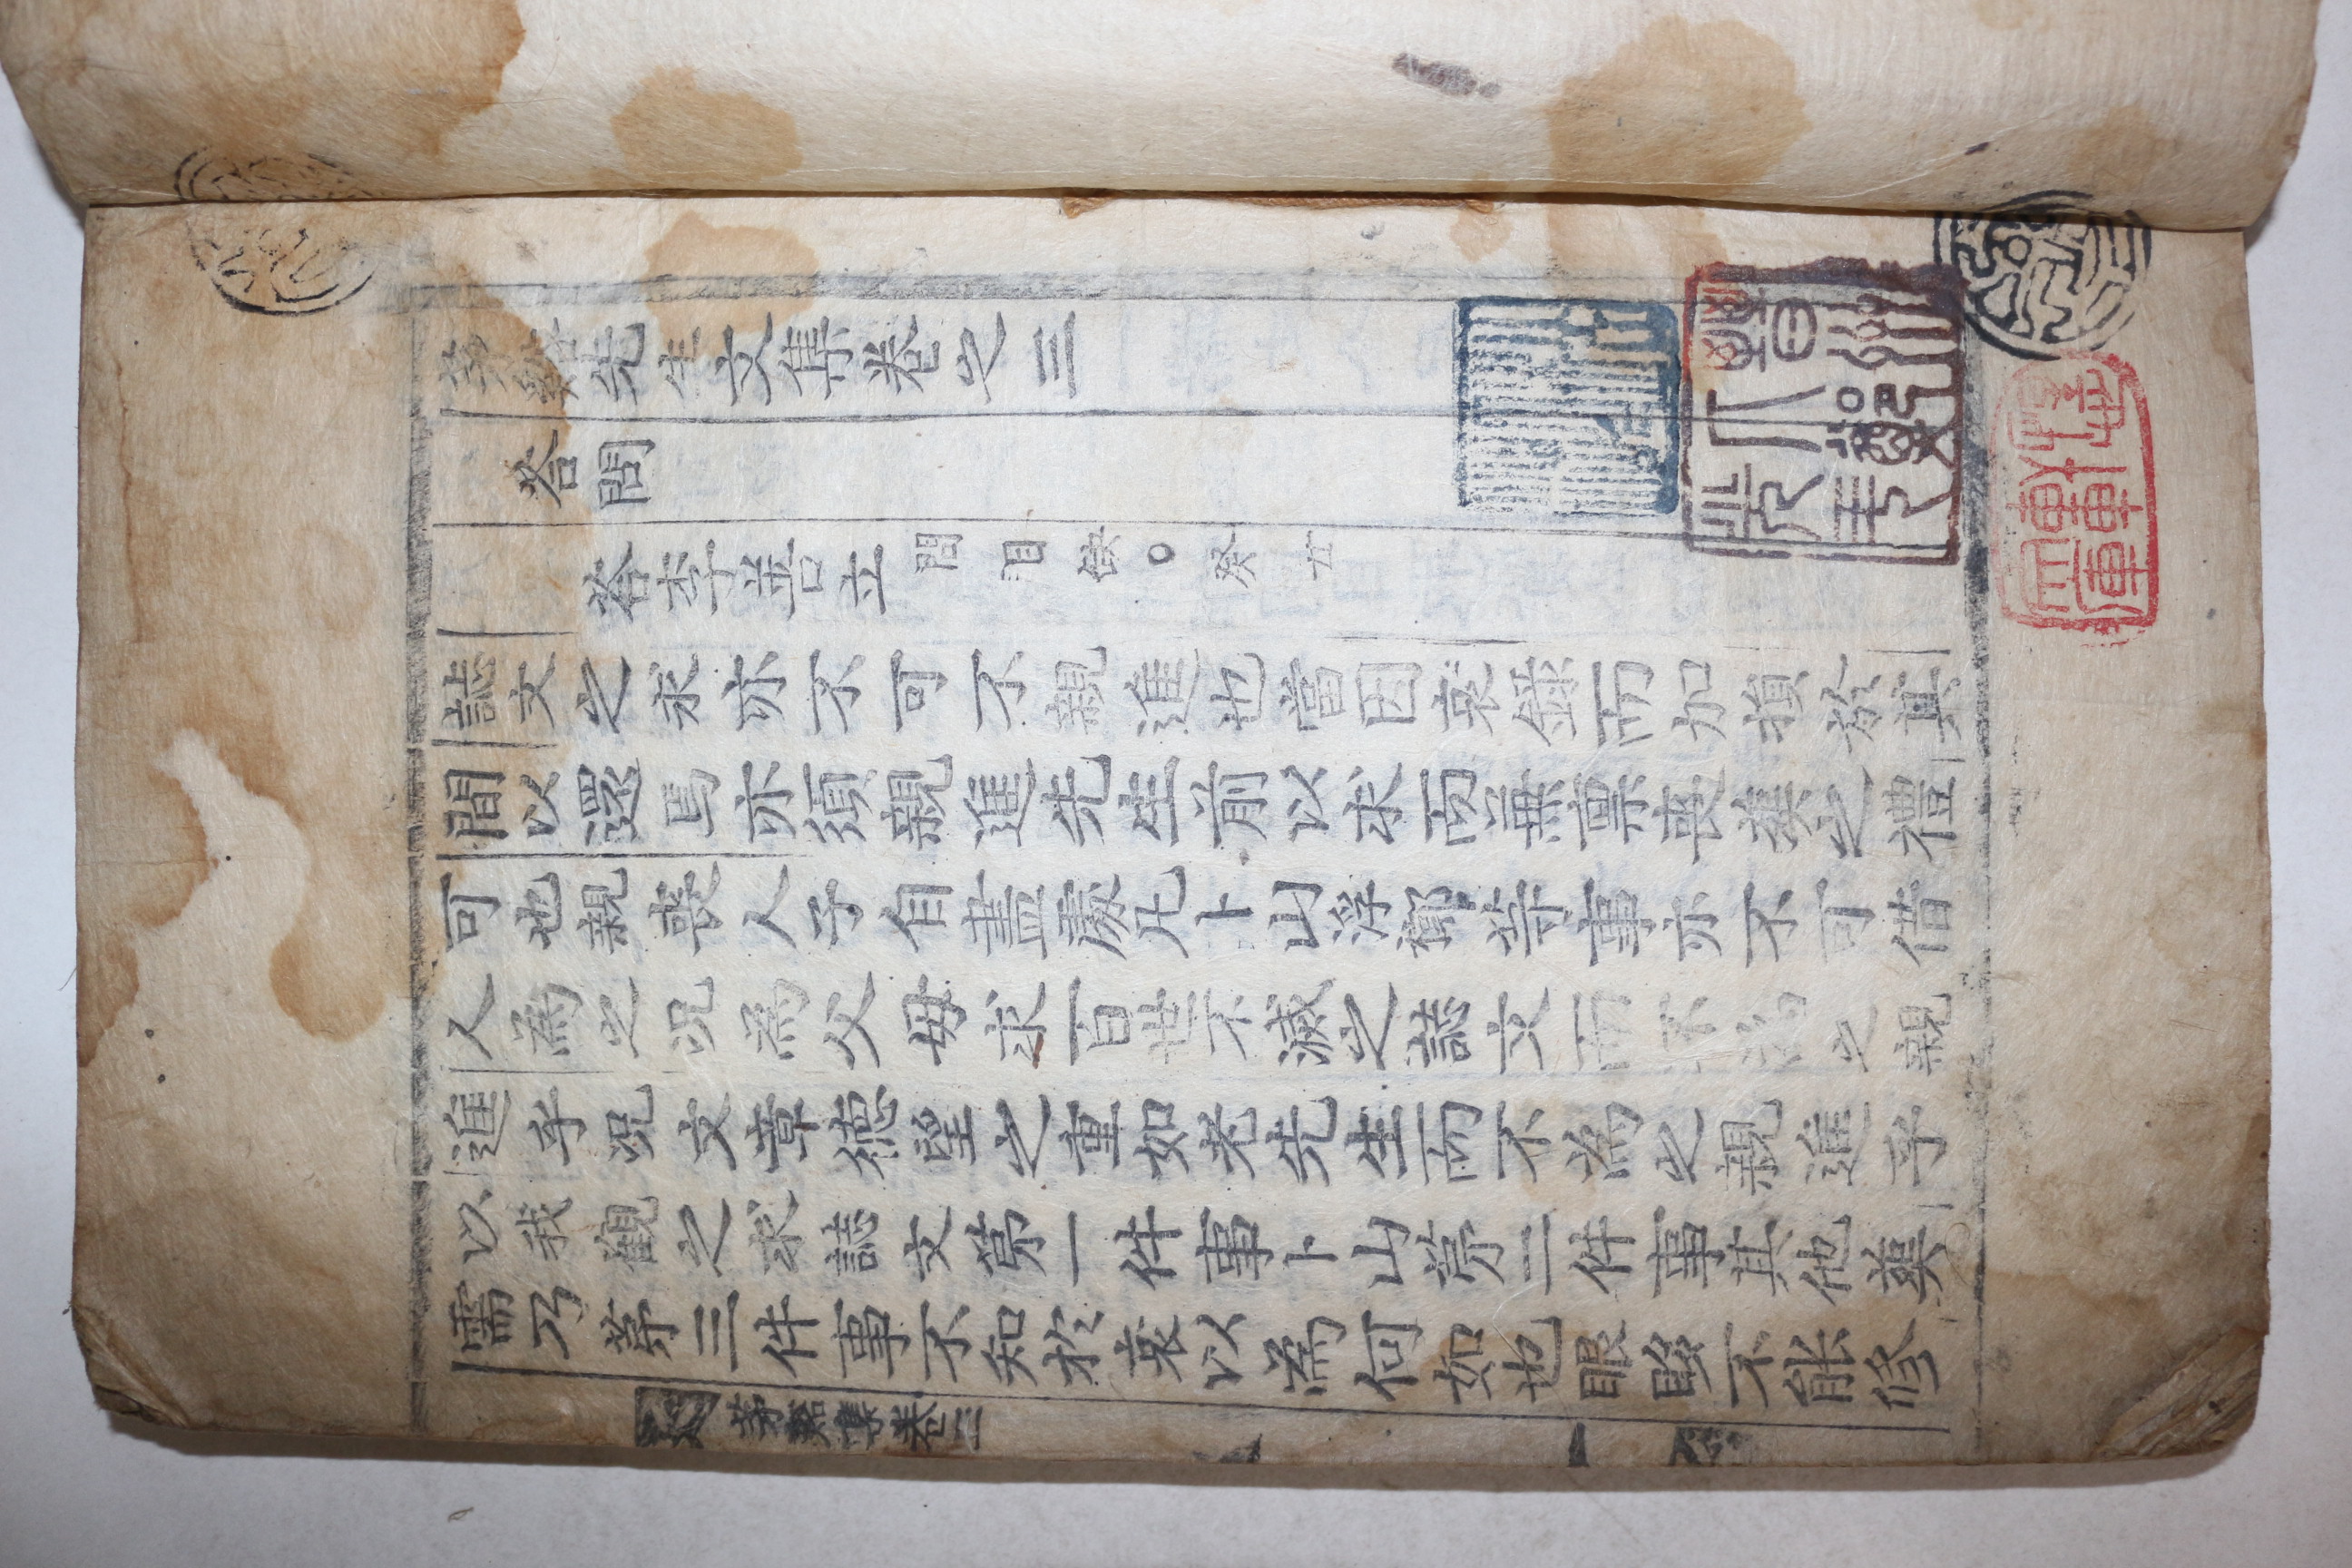 茅谿先生文集卷之三
答問
答李善立 問目缺○癸丑
誌文之求亦不可不親進也當因哀錄而加損於其
間以還焉亦須親進先生前以求而無喪葬之禮
可也親喪人子自盡處凡卜山浮等事亦不可借
人爲之况爲父母求百世不滅之誌文而不爲之親
進乎况文章德望之重如老先生而不爲之親進乎
以我觀之求誌文第一件事卜山第二件事其他奠
需乃第三件事不知於哀以爲何如也眼眵不能修
茅谿集卷三